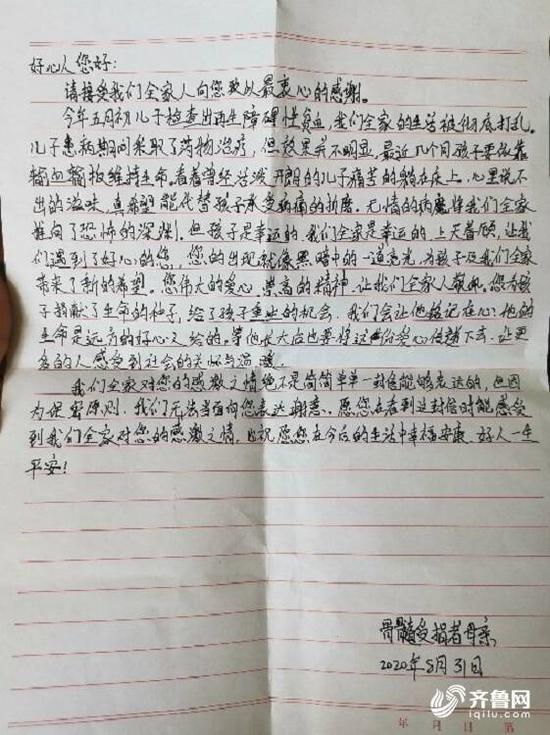 好心人您好:
请接受我们全家人向您致以最衷心的感谢。
今年五月初儿子检查出再生障碍性贫血,我们全家的生活被彻底打乱。
儿子患病期间采取了药物治疗,但效果并不明显,最近几个月孩子要依靠
输血输板维持生命。看着曾经活泼开朗的儿子痛苦的躺在床上,心里说不
出的滋味,真希望能代替孩子承受病痛的折磨。无情的病魔将我们全家
推向了恐怖的深渊。但孩子是幸运的,我们全家是幸运的,上天眷顾,让我
们遇到了好心的您,您的出现就像黑暗中的一道亮光,为孩子及我们全家
带来了新的希望。您伟大的爱心,崇高的精神,让我们全家人敬佩。您为孩
子捐献了生命的种子,给了孩子重生的机会,我们会让他铭记在心,他的
生命是远方的好心人给的。等他长大后也要将这份爱心传递下去,让更
多的人感受到社会的关怀与温暖。
我们全家对您的感激之情绝不是简简单单一封信能够表达的,但因
为保密原则,我们无法当面向您表达谢意。愿您在看到这封信时能感受
到我们全家对您的感激之情,也祝愿您在今后的生活中幸福安康,好人一生
平安!
骨髓受捐者母亲
2020年8月31日
年 月 日 第
齐鲁网
iqilu.com